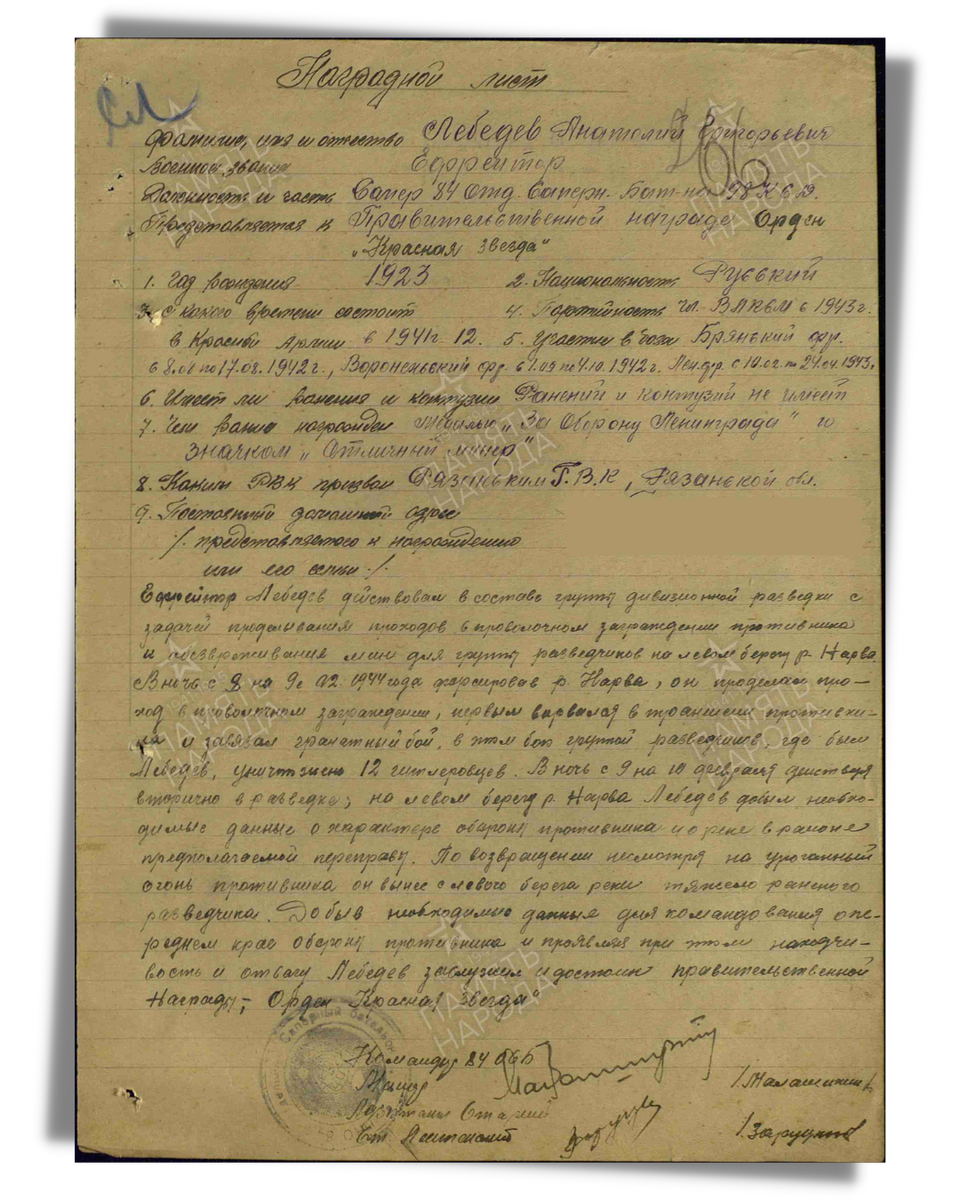 Наградной лист
Фамилия, имя и отчество Лебедев Анатолий Григорьевич
Военное звание Ефрейтор
Должность и часть Сапер 84 Отд. Саперн. Бат-на 98
Представляется к Правительственной награде Орден
„Красная звезда"
1. Год рождения 1923 2. Национальность Руський
3. С какого времени состоит 4. Партийность чл. ВЛКСМ с 1943 г.
в Красной Армии с 1941 г. 12. 5. Участие в боях Брянский фр.
с 8.08 по 17.08.1942 г., Воронежский фр. с 1.09 по 4.10.1942г. Лен.фр. с 10.02 по 24.04.1943г
6. Имеет ли ранения и контузии Ранений и контузий не имеет
7. Чем ранее награжден медалью „За Оборону Ленинграда"
значком „Отличный минер"
8. Каким РВК призван Рязаньким Г.В.К, Рязанькой обл.
9. Постоянный домашний адрес
/. представляемого к награждению
или его семьи ./.
Ефрейтор Лебедев действовал в составе группы дивизионной разведки с
задачей проделывания проходов в проволочном заграждении противника
и обезвреживания мин для группы разведчиков на левом берегу р. Нарва.
В ночь с 8 на 9 02 1944 года форсировав р. Нарва, он проделал про-
ход в проволочном заграждении, первым ворвался в траншеи противни-
ка и завязал гранатный бой, в этом бою группой разведчиков, где был
Лебедев, уничтожено 12 гитлеровцев. В ночь с 9 на 10 февраля действуя
вторично в разведке, на левом берегу р. Нарва Лебедев добыл необхо-
димые данные о характере обороны противника и о реке в районе
предполагаемой переправы. По возвращении несмотря на ураганный
огонь противника он вынес с левого берега реки тяжело раненого
разведчика. Добыв необходимые данные для командования о пе-
реднем крае обороны противника и проявляя при этом находчи-
вость и отвагу Лебедев заслужил и достоин правительственной
Награды, Орден Красная звезда"
Саперный батальон
Командир 84 ОСБ
Майор /Малашкин
Старший